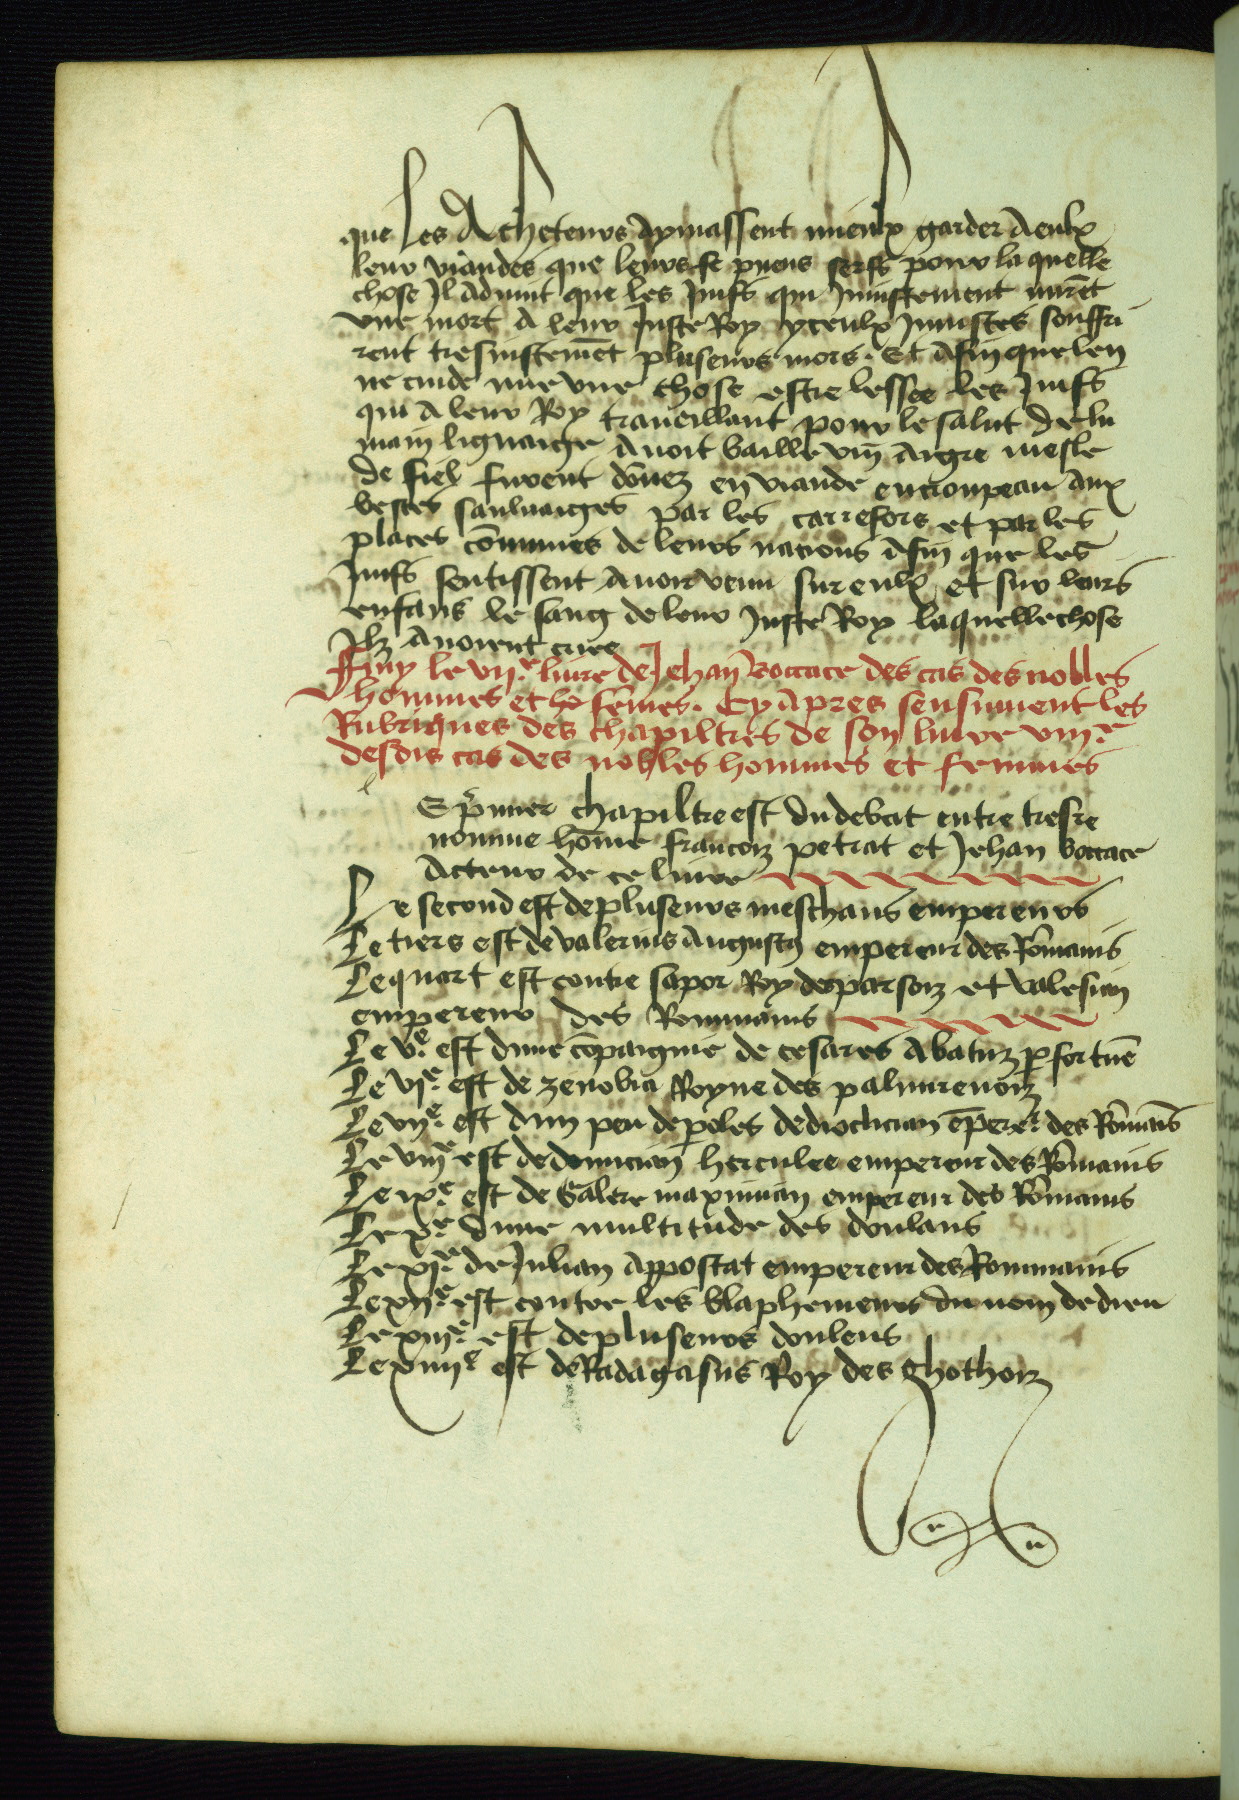 que les Acheteurs Aymassent mieulx garder A eulx
leur viandes que leurs se prenons serfs pour laquelle
chose Il Advint que les Juifs qui Iniustement mirēt
vne mort A leur Juste Roy yceulx Iniustes souffri
rent tresiustemēt pluseurs mors. Et Afin que len
ne cuide nue vne chose estre lessee les Juifs
qui A leur Roy traueillant pour le salut de lu
main lignaige Auoit baille vin Aigre mesle
de fiel furent dōnez en viande en troupeau Aux
bestes sauluaiges par les carrefors et par les
places cōmunes de leurs nacions Afin que les
Juifs sentissent Auoir venu sur eulx et sur leurs
enfans le sang de leur Juste Roy laquelle chose
Ilz Auoient cree
Finy le vije liure de Jehan boccace des cas des nobles
hommes et ho femes. Cy Apres sensuiuent les
Rubriques des chapiltres de son liure viije
desdis cas des nobles hommes et femmes
l
E p'mier chapiltre est du debat entre tresre
nomme hōme francoiz petrac et Jehan boccace
Acteur de ce liure
Le second est de pluseurs meschans empereurs
Le tiers est de valerius Augustus empereur des Rōmains
Le quart est contre sapor Roy de parsoiz et valerian
empereur des Rommains
Le ve est dune cōpaignie de cesares Abatuz p fortune
Le vie est de zenobia Royne des palmirenoiz
Le vije est dun peu de p̄oles de dioclician ēpere' des Rōmains
Le viije est de domician hercules empereur des Rōmains
Le ixe est de Galere maximian empereur des Rōmains
Le xe dune multitude des doulans
Le xje de Julian Appostat empereur des Rommains
Le xije est contre les blaphemeurs du nom de dieu
Le xiije est de pluseurs douleus
Le xiiije est de Radagasus Roy des ghothoiz